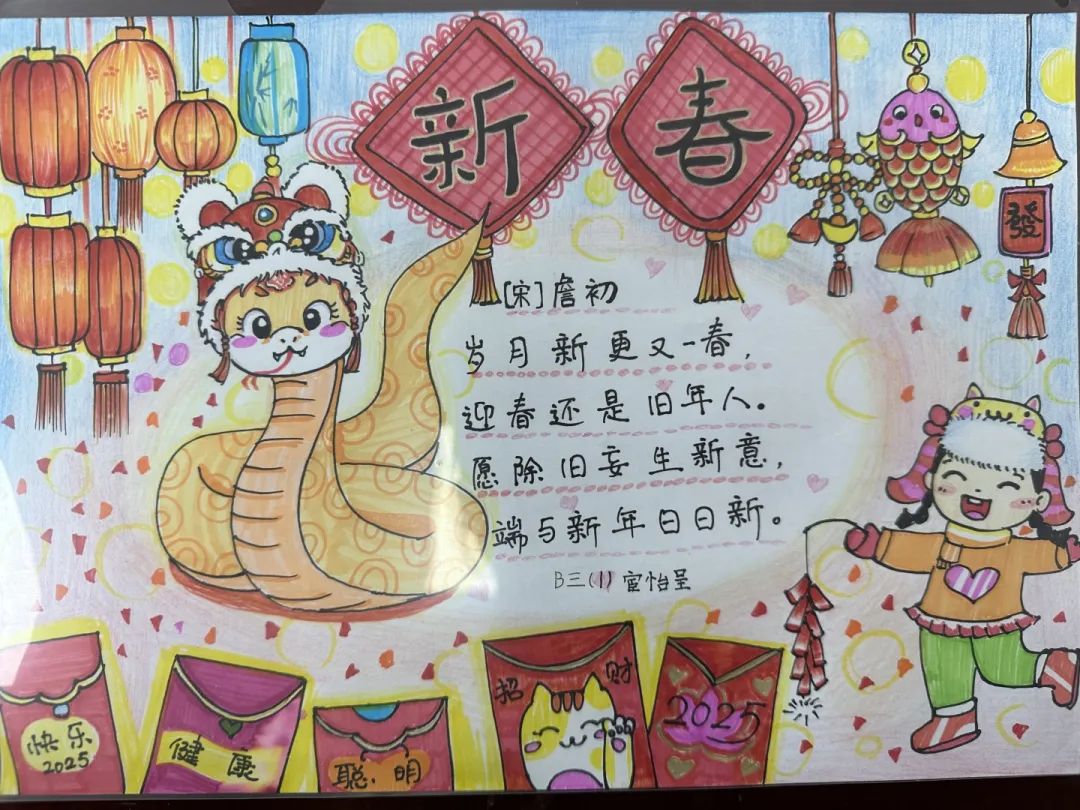 新春
發
[宋]詹初
岁月新更又一春，
迎春还是旧年人。
愿除旧妄生新意，
端与新年日日新。
B三(1) 宦怡呈
快乐
2025
健康
聪明
招财
2025